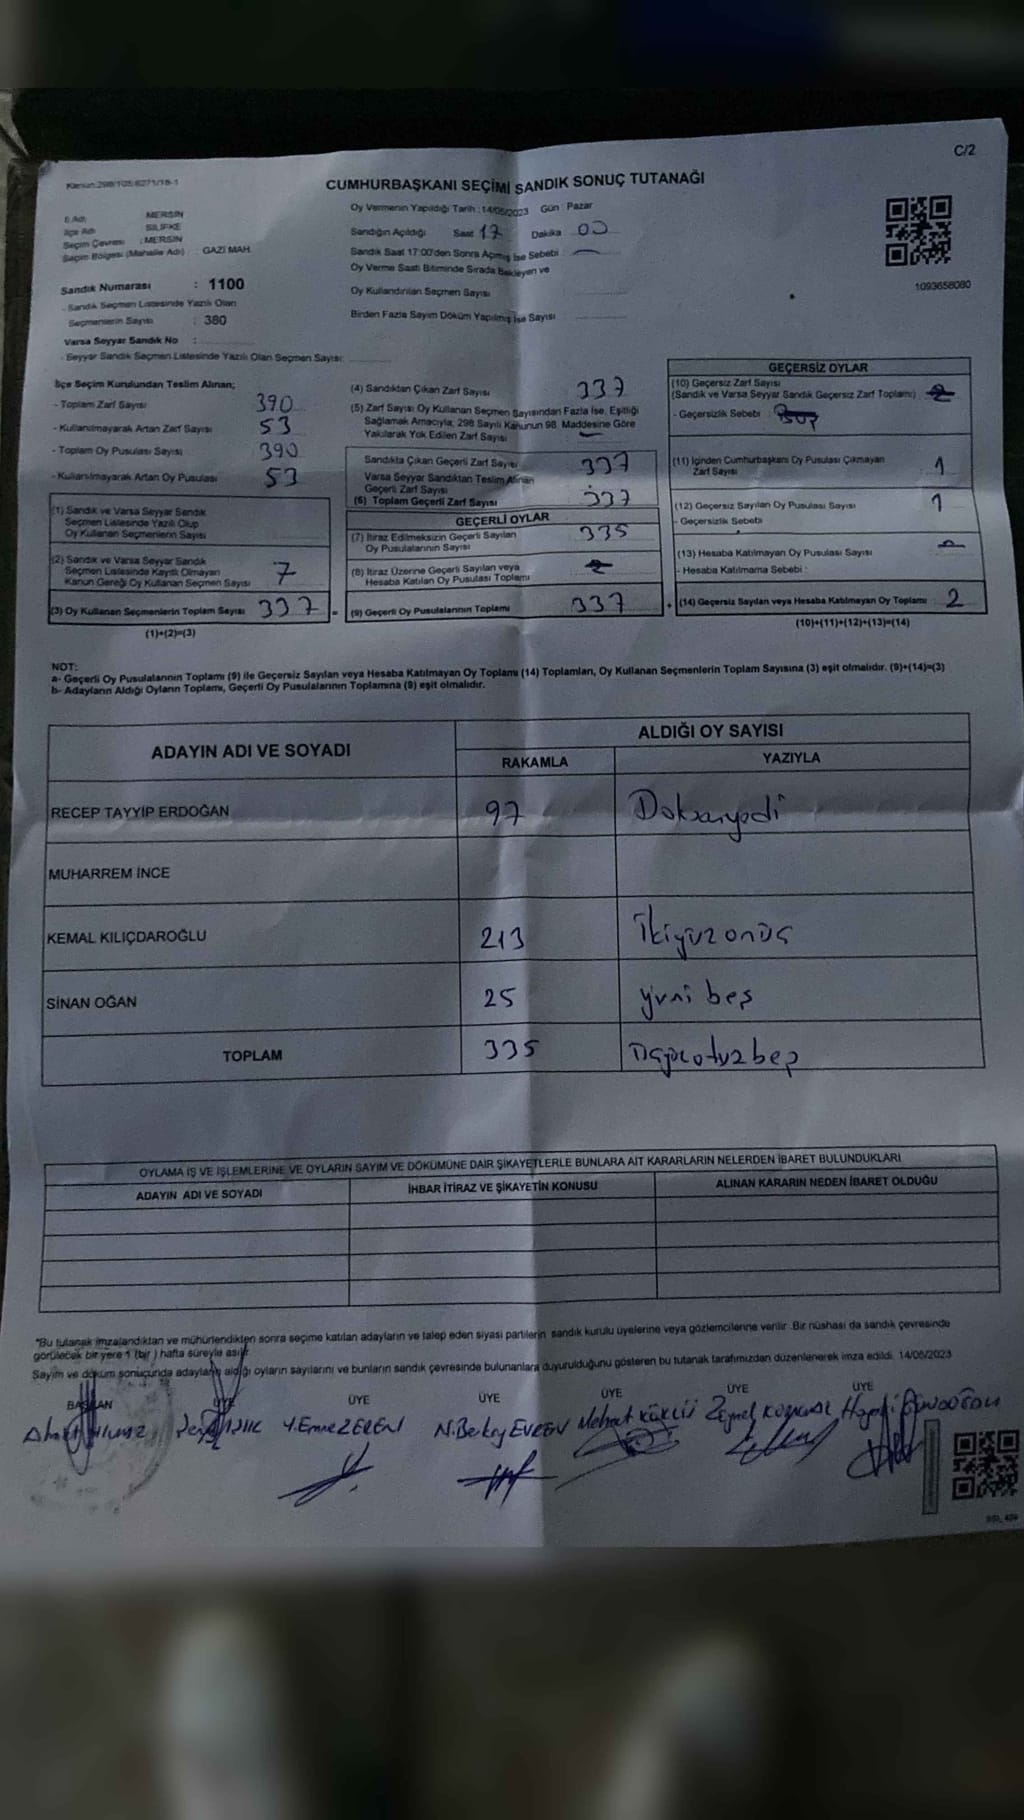 C/2
CUMHURBAŞKANI SEÇİMİ SANDIK SONUÇ TUTANAĞI
İl Adı MERSİN
İlçe Adı SİLİFKE
Seçim Çevresi : MERSİN
Seçim Bölgesi (Mahalle Adı) : GAZİ MAH.
Sandık Numarası : 1100
- Sandık Seçmen Listesinde Yazılı Olan
Seçmenlerin Sayısı : 380
Varsa Seyyar Sandık No :
- Seyyar Sandık Seçmen Listesinde Yazılı Olan Seçmen Sayısı:
Oy Vermenin Yapıldığı Tarih : 14/05/2023 Gün : Pazar
Sandığın Açıldığı Saat 17 Dakika 00
Sandık Saat 17:00'den Sonra Açılmış İse Sebebi :
Oy Verme Saati Bitiminde Sırada Bekleyen ve
Oy Kullandırılan Seçmen Sayısı
Birden Fazla Sayım Döküm Yapılmış İse Sayısı
1093658080
İlçe Seçim Kurulundan Teslim Alınan;
- Toplam Zarf Sayısı 390
- Kullanılmayarak Artan Zarf Sayısı 53
- Toplam Oy Pusulası Sayısı 390
- Kullanılmayarak Artan Oy Pusulası 53
(1) Sandık ve Varsa Seyyar Sandık
Seçmen Listesinde Yazılı Olup
Oy Kullanan Seçmenlerin Sayısı
(2) Sandık ve Varsa Seyyar Sandık
Seçmen Listesinde Kayıtlı Olmayan
Kanun Gereği Oy Kullanan Seçmen Sayısı 7
(3) Oy Kullanan Seçmenlerin Toplam Sayısı 337 =
(1)+(2)=(3)
(4) Sandıktan Çıkan Zarf Sayısı 337
(5) Zarf Sayısı Oy Kullanan Seçmen Sayısından Fazla İse, Eşitliği
Sağlamak Amacıyla, 298 Sayılı Kanunun 98. Maddesine Göre
Yakılarak Yok Edilen Zarf Sayısı
Sandıkta Çıkan Geçerli Zarf Sayısı 337
Varsa Seyyar Sandıktan Teslim Alınan
Geçerli Zarf Sayısı
(6) Toplam Geçerli Zarf Sayısı 337
GEÇERLİ OYLAR
(7) İtiraz Edilmeksizin Geçerli Sayılan
Oy Pusulalarının Sayısı 335
(8) İtiraz Üzerine Geçerli Sayılan veya
Hesaba Katılan Oy Pusulası Toplamı
(9) Geçerli Oy Pusulalarının Toplamı 337 +
GEÇERSİZ OYLAR
(10) Geçersiz Zarf Sayısı
(Sandık ve Varsa Seyyar Sandık Geçersiz Zarf Toplamı)
- Geçersizlik Sebebi :
(11) İçinden Cumhurbaşkanı Oy Pusulası Çıkmayan
Zarf Sayısı 1
(12) Geçersiz Sayılan Oy Pusulası Sayısı 1
- Geçersizlik Sebebi
(13) Hesaba Katılmayan Oy Pusulası Sayısı
- Hesaba Katılmama Sebebi :
(14) Geçersiz Sayılan veya Hesaba Katılmayan Oy Toplamı 2
(10)+(11)+(12)+(13)=(14)
NOT:
a- Geçerli Oy Pusulalarının Toplamı (9) ile Geçersiz Sayılan veya Hesaba Katılmayan Oy Toplamı (14) Toplamları, Oy Kullanan Seçmenlerin Toplam Sayısına (3) eşit olmalıdır. (9)+(14)=(3)
b- Adayların Aldığı Oyların Toplamı, Geçerli Oy Pusulalarının Toplamına (9) eşit olmalıdır.
ADAYIN ADI VE SOYADI ALDIĞI OY SAYISI
RAKAMLA YAZIYLA
RECEP TAYYİP ERDOĞAN 97 Doksanyedi
MUHARREM İNCE
KEMAL KILIÇDAROĞLU 213 İkiyüzonüç
SİNAN OĞAN 25 yirmi beş
TOPLAM 335
OYLAMA İŞ VE İŞLEMLERİNE VE OYLARIN SAYIM VE DÖKÜMÜNE DAİR ŞİKAYETLERLE BUNLARA AİT KARARLARIN NELERDEN İBARET BULUNDUKLARI
ADAYIN ADI VE SOYADI İHBAR İTİRAZ VE ŞİKAYETİN KONUSU ALINAN KARARIN NEDEN İBARET OLDUĞU
"Bu tutanak imzalandıktan ve mühürlendikten sonra seçime katılan adayların ve talep eden siyasi partilerin sandık kurulu üyelerine veya gözlemcilerine verilir. Bir nüshası da sandık çevresinde
görülecek bir yere 1 (bir) hafta süreyle asılır.
Sayım ve döküm sonucunda adayların aldığı oyların sayılarını ve bunların sandık çevresinde bulunanlara duyurulduğunu gösteren bu tutanak tarafımızdan düzenlenerek imza edildi. 14/05/2023
BAŞKAN ÜYE ÜYE ÜYE ÜYE ÜYE ÜYE
Y.Emre ZEREN N.Berkay EVREN Mehmet Zeynel